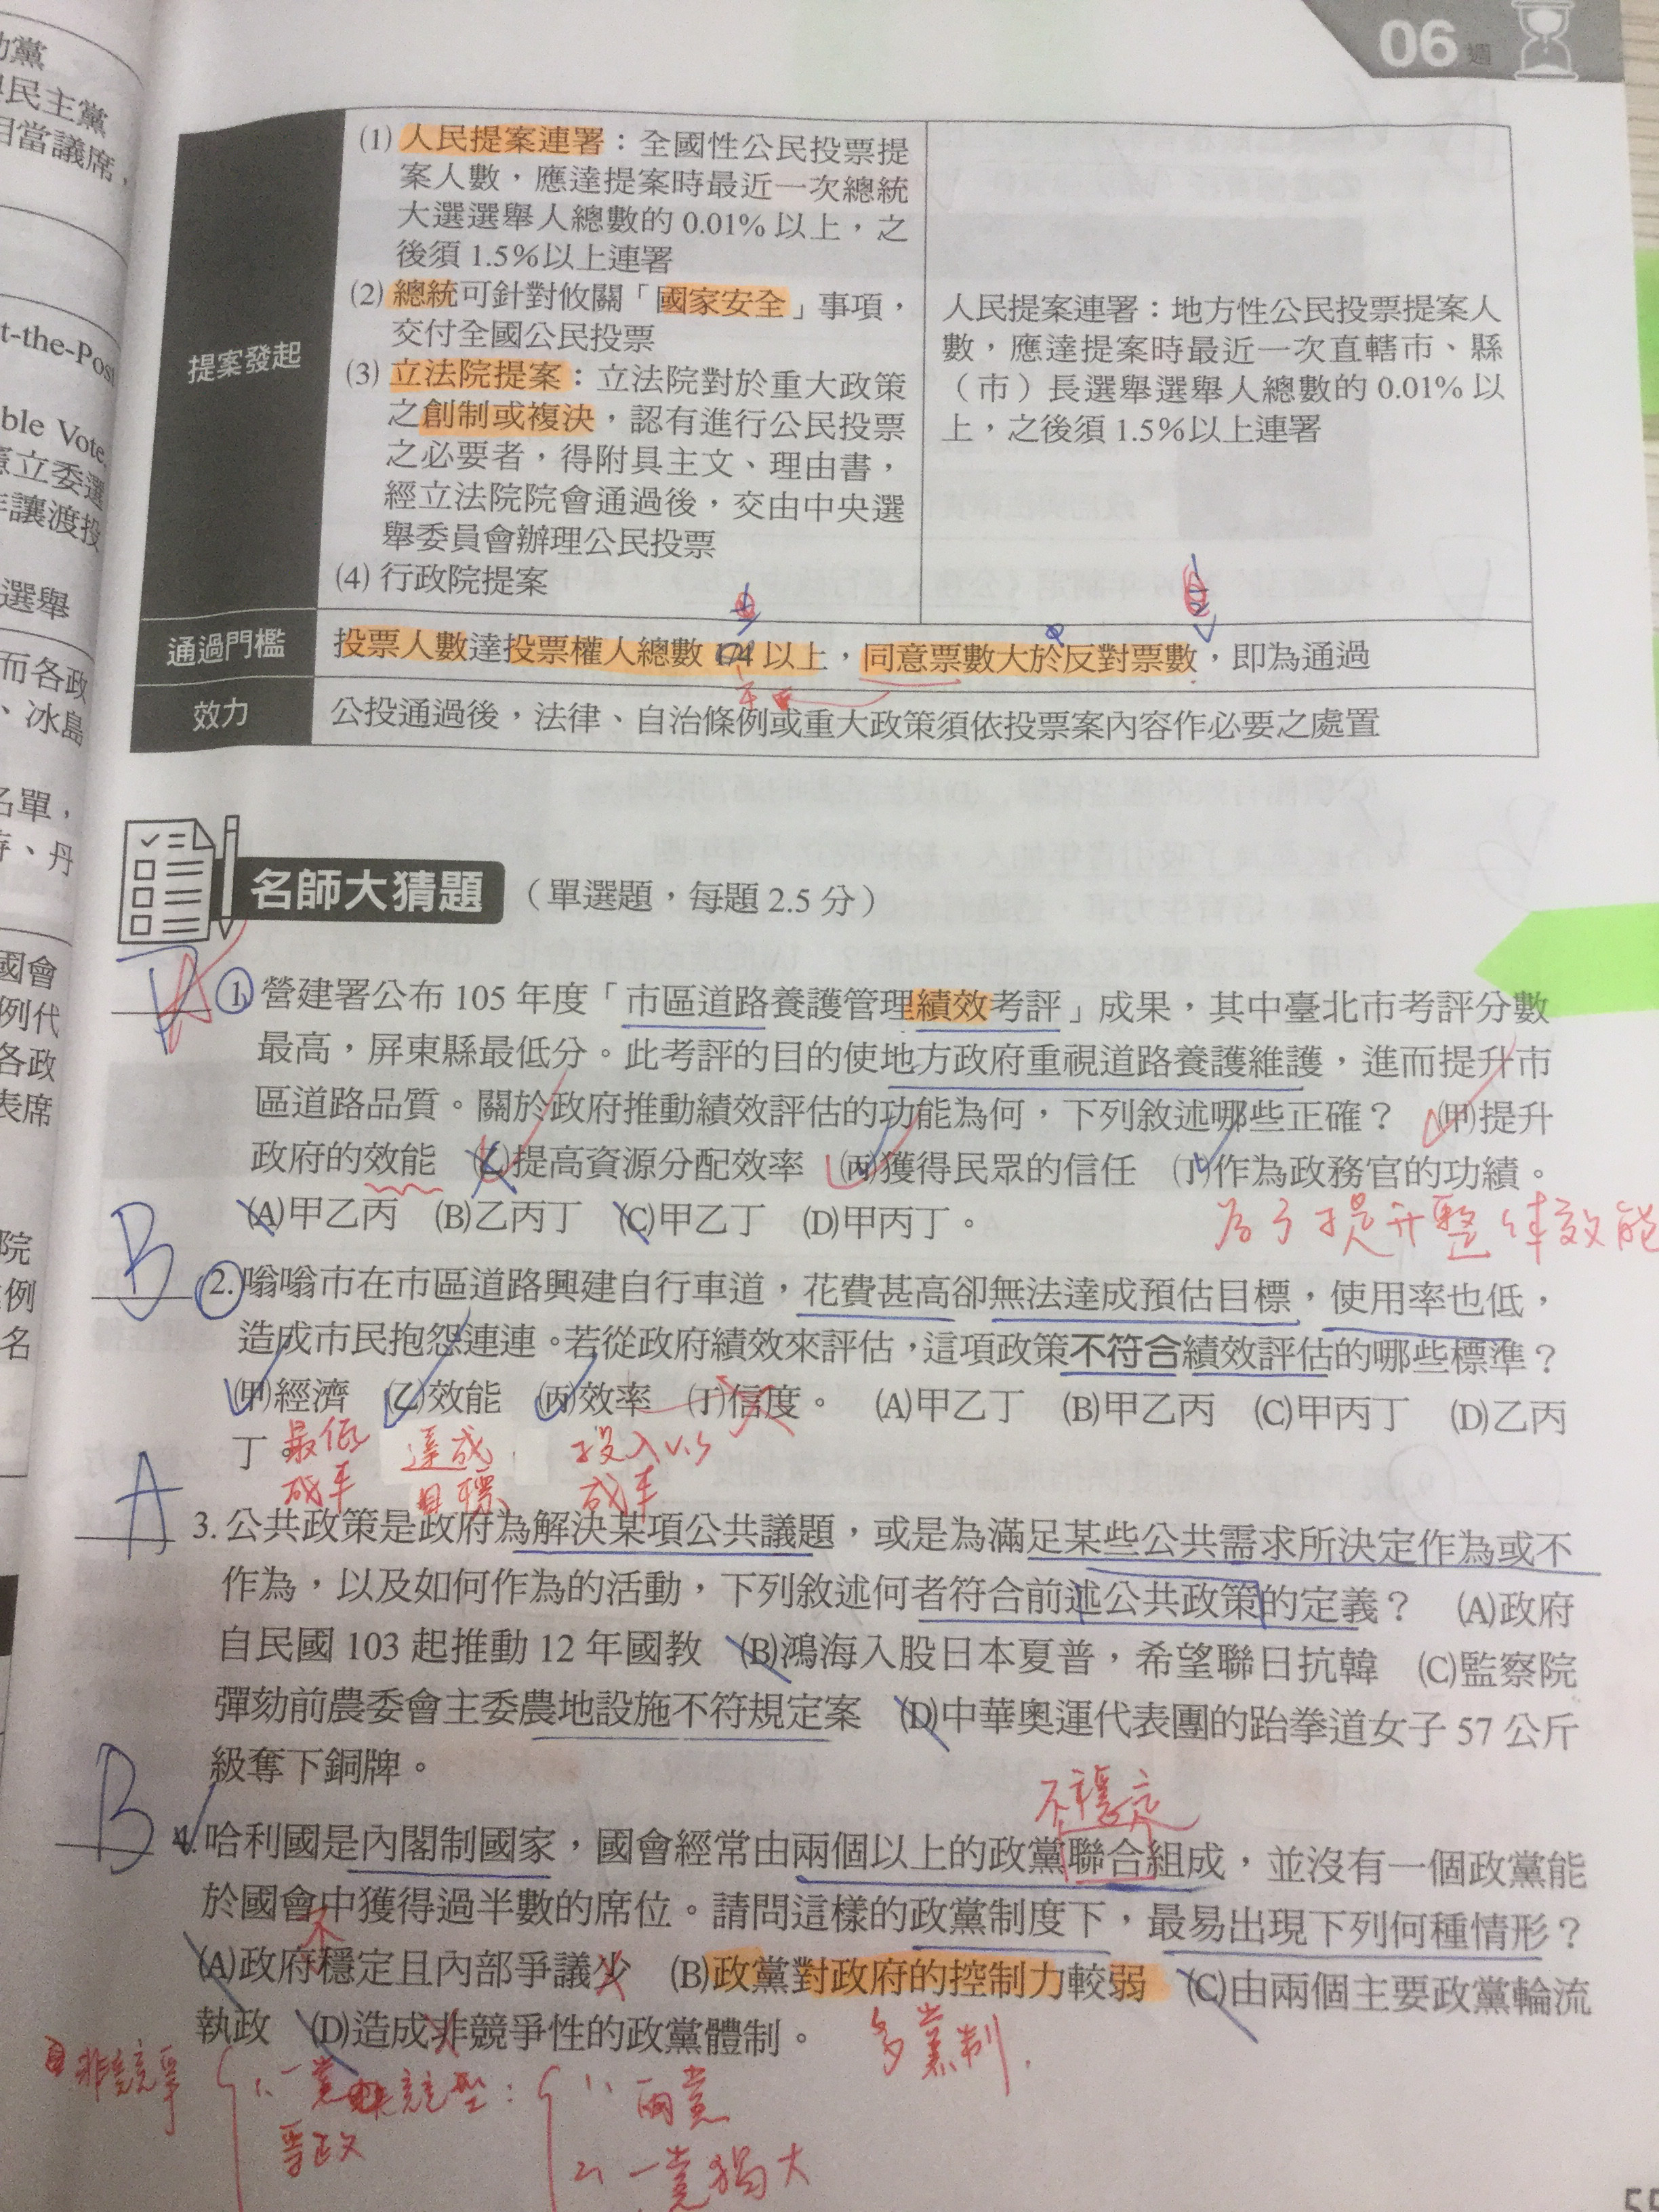 06 週
功黨
與民主黨
相當議席，
t-the-Post
ble Vote,
憲立委選
讓渡投
選舉
而各政
、冰島
名單，
、丹
國會
例代
各政
表席
院
例
名
提案發起
(1) 人民提案連署：全國性公民投票提
案人數，應達提案時最近一次總統
大選選舉人總數的 0.01% 以上，之
後須 1.5%以上連署
(2) 總統可針對攸關「國家安全」事項，
交付全國公民投票
(3) 立法院提案：立法院對於重大政策
之創制或複決，認有進行公民投票
之必要者，得附具主文、理由書，
經立法院院會通過後，交由中央選
舉委員會辦理公民投票
(4) 行政院提案
人民提案連署：地方性公民投票提案人
數，應達提案時最近一次直轄市、縣
（市）長選舉選舉人總數的 0.01% 以
上，之後須 1.5%以上連署
通過門檻
投票人數達投票權人總數 1/4 以上，同意票數大於反對票數，即為通過
效力
公投通過後，法律、自治條例或重大政策須依投票案內容作必要之處置
名師大猜題 （單選題，每題 2.5 分）
D A 1. 營建署公布 105 年度「市區道路養護管理績效考評」成果，其中臺北市考評分數
最高，屏東縣最低分。此考評的目的使地方政府重視道路養護維護，進而提升市
區道路品質。關於政府推動績效評估的功能為何，下列敘述哪些正確？ (甲)提升
政府的效能 (乙)提高資源分配效率 (丙)獲得民眾的信任 (丁)作為政務官的功績。
(A)甲乙丙 (B)乙丙丁 (C)甲乙丁 (D)甲丙丁。
為了提升整体效能
B 2. 嗡嗡市在市區道路興建自行車道，花費甚高卻無法達成預估目標，使用率也低，
造成市民抱怨連連。若從政府績效來評估，這項政策不符合績效評估的哪些標準？
(甲)經濟 (乙)效能 (丙)效率 (丁)信度。 (A)甲乙丁 (B)甲乙丙 (C)甲丙丁 (D)乙丙
丁。
最低 達成 投入v.s
成本 目標 成本
A 3. 公共政策是政府為解決某項公共議題，或是為滿足某些公共需求所決定作為或不
作為，以及如何作為的活動，下列敘述何者符合前述公共政策的定義？ (A)政府
自民國 103 起推動 12 年國教 (B)鴻海入股日本夏普，希望聯日抗韓 (C)監察院
彈劾前農委會主委農地設施不符規定案 (D)中華奧運代表團的跆拳道女子 57 公斤
級奪下銅牌。
不穩定
B 4. 哈利國是內閣制國家，國會經常由兩個以上的政黨聯合組成，並沒有一個政黨能
於國會中獲得過半數的席位。請問這樣的政黨制度下，最易出現下列何種情形？
不
(A)政府穩定且內部爭議少 (B)政黨對政府的控制力較弱 (C)由兩個主要政黨輪流
執政 (D)造成非競爭性的政黨體制。
多黨制.
非競爭
1. 一黨
專政
競
型：
1. 兩黨
2. 一黨獨大
55